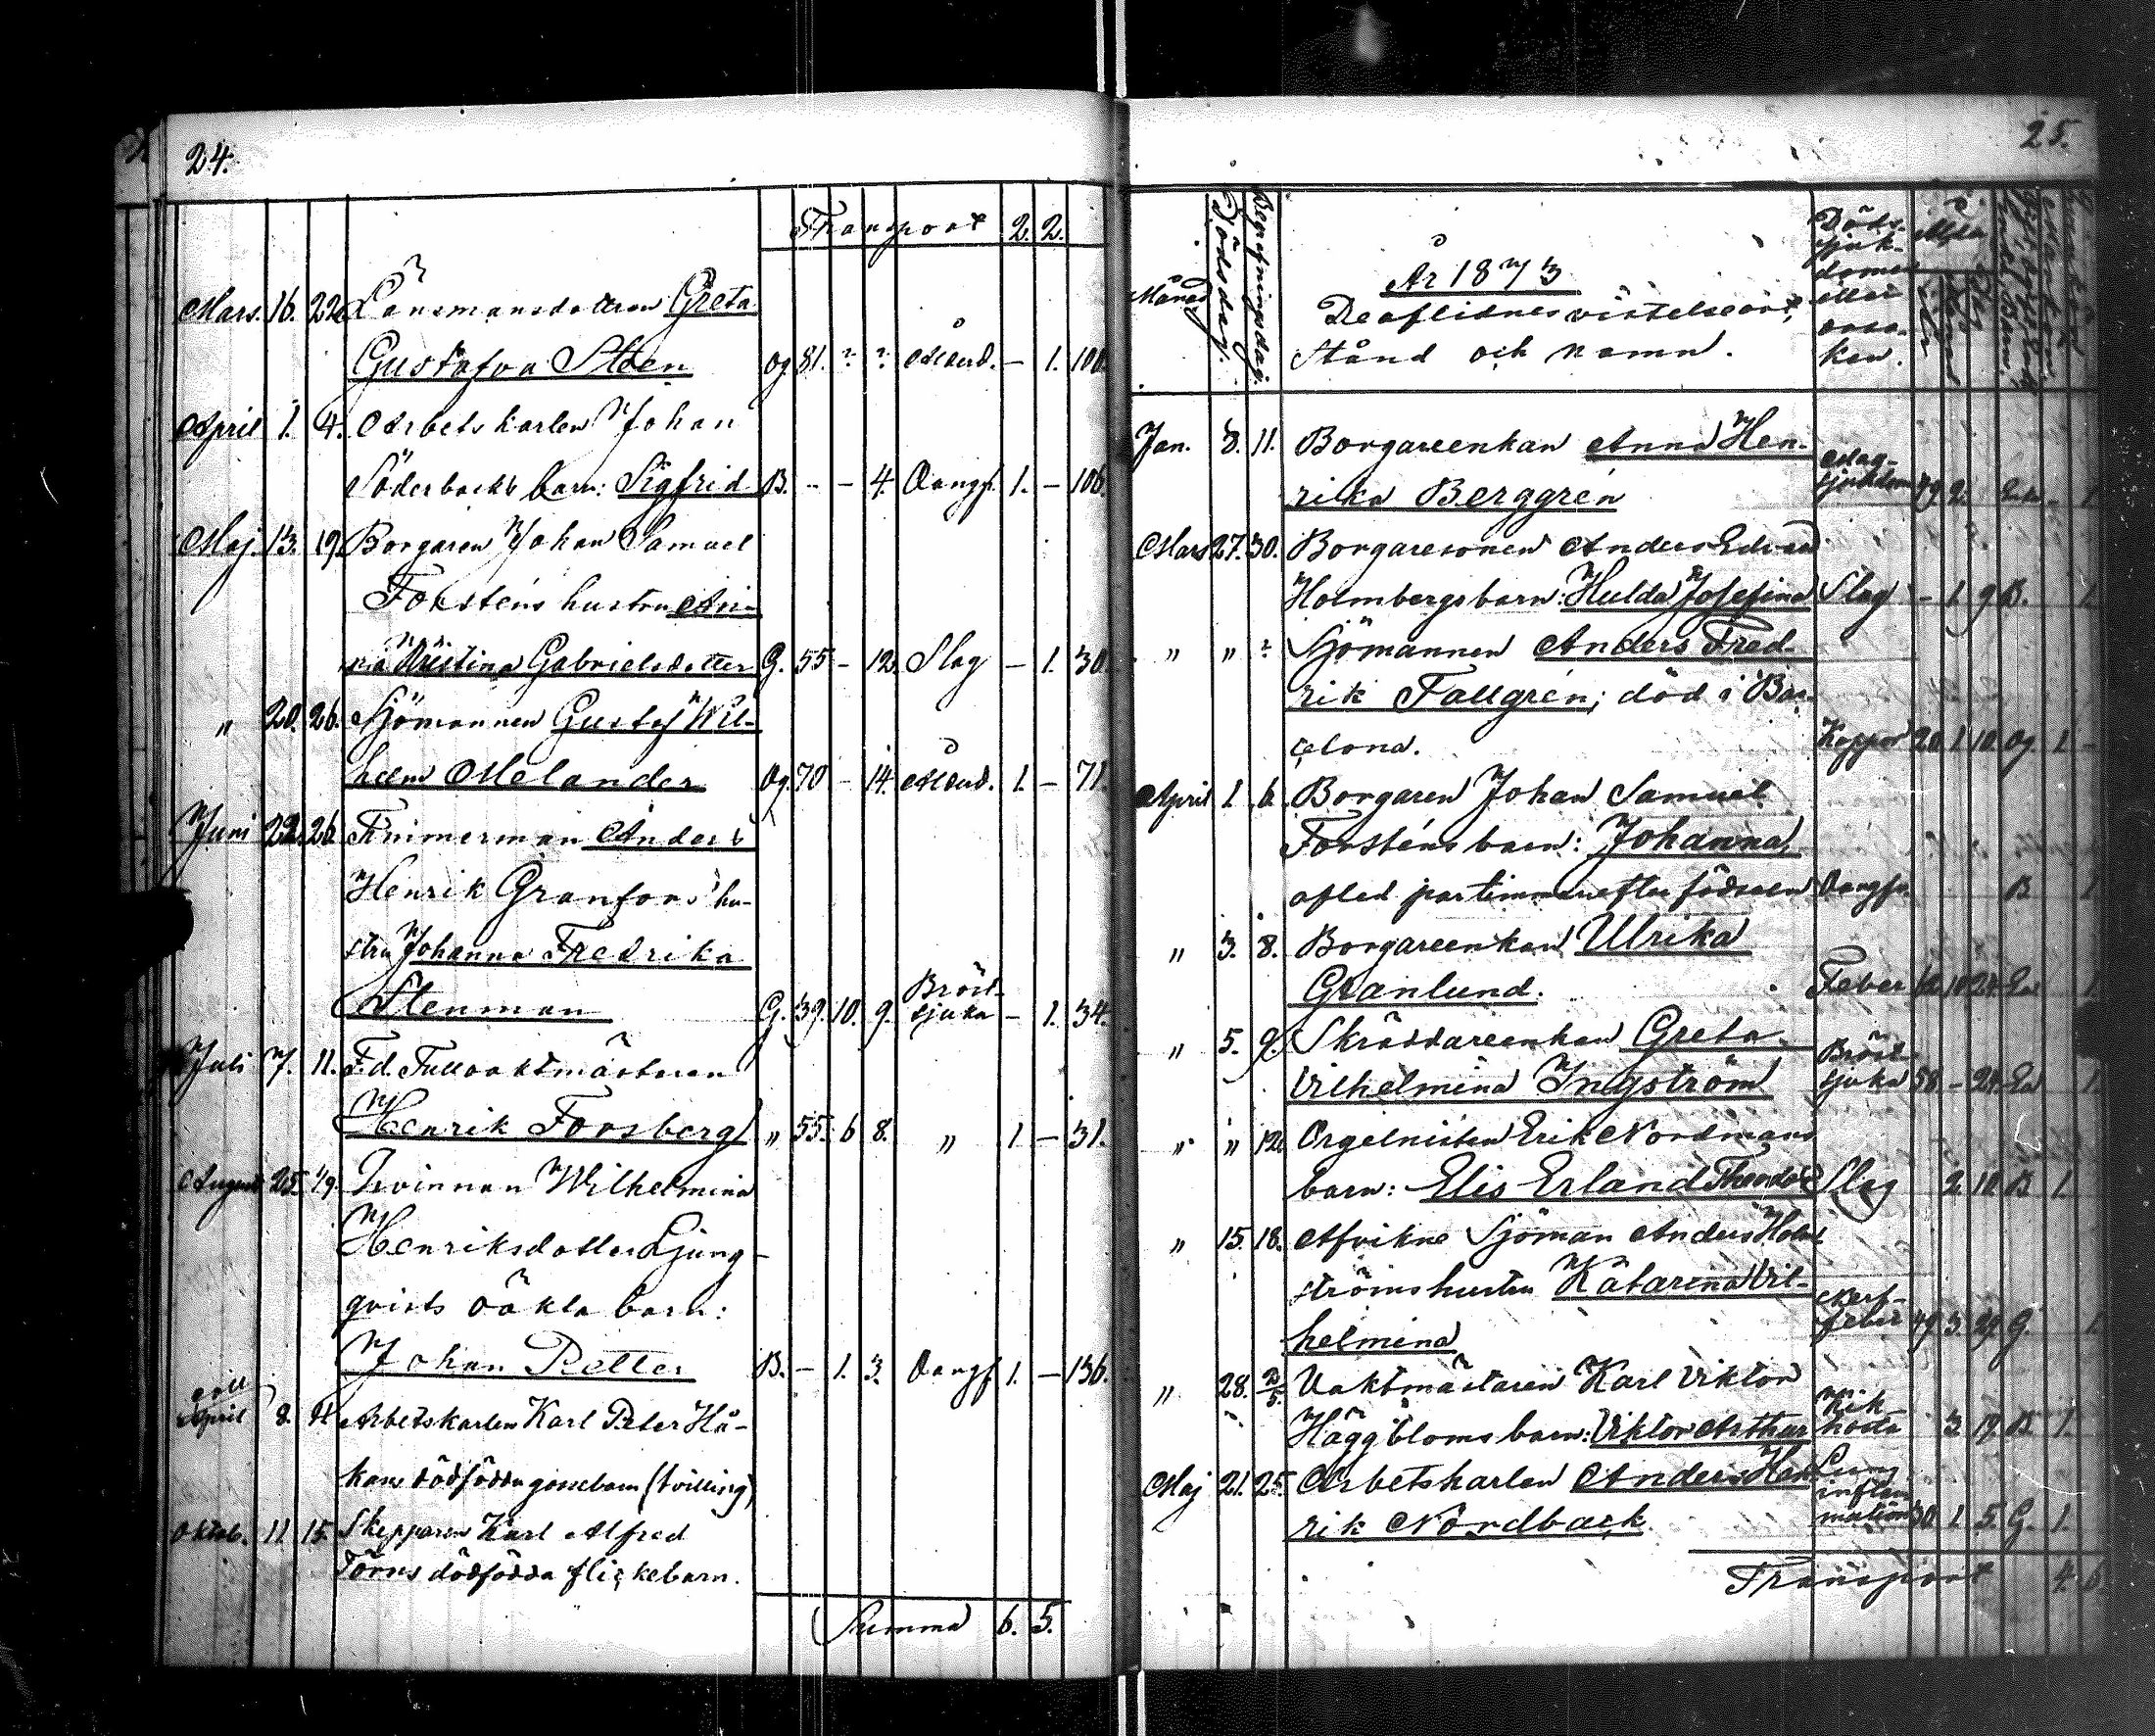 24.
Transport 2. 2.
Mars. 16. 22. Länsmansdottren Greta
Gustafva Steen Og. 81. ? ? Ålderd. — 1. 100.
April 1. 4. Arbetskarlen Johan
Söderbacks barn: Sigfrid B. - - 4. Oangf. 1. — 106.
Maj. 13. 19. Borgaren Johan Samuel
Forsténs hustru
Kristina Gabrielsdotter G. 55 - 12. Slag — 1. 30.
" 20. 26. Sjömannen Gustaf Wil-
helm Melander Og. 70 - 14. Ålderd. 1. — 71.
Juni 22. 26. Timmerman Anders
Henrik Granfors' hu-
stru Johanna Fredrika
Stenman G. 39. 10. 9. Bröst-
sjuka — 1. 34.
Juli 7. 11. F.d. Tullvaktmästaren
Henrik Forsberg " 55. 6 8. " 1 — 31.
August 25. 1/9. Qvinnan Wilhelmina
Henriksdotter Ljung-
qvists oäkta barn:
Johan Petter B. - 1. 3. Oangf. 1. — 136.
April 8. Arbetskarlen Karl Peter Hå-
kans dödfödda gossebarn (tvilling)
Oktob. 11. 15. Skepparen Karl Alfred
Törns dödfödda flickebarn.
Summa 6. 5.
25.
År 1873
Månad Dödsdag. Begrafningsdag. De aflidnes vistelseort,
Stånd och namn.
Döds-
sjuk-
domen
eller
orsa-
ken.
Ålder
Jan. 8. 11. Borgareenkan Anna Hen-
rika Berggrén Mag-
sjukdom 79. 2. Enka - 1
Mars 27. 30. Borgaresonen Anders Edvard
Holmbergs barn: Hulda Josefina Slag - 1. 9 B. 1.
" " ? Sjömannen Anders Fred-
rik Fallgrén; död i Bar-
celona. Koppor 20. 1. 10. Og. 1. -
April 1. 6. Borgaren Johan Samuel
Forsténs barn: Johanna,
afled par timmar efter födseln Oangf. B 1
" 3. 8. Borgareenkan Ulrika
Granlund. Feber 24. En 1
" 5. 9. Skräddareenkan Greta
Vilhelmina Ingström Bröst-
sjuka 58. - 24. En 1
" " 12. Orgelnisten Erik Nordmans
barn: Elis Erland Theodor Slag 2. 18. B 1.
" 15. 18. Afvikne Sjöman Anders Holm-
ströms hustru Katarina Vil-
helmina Nerf-
feber 49. 3. 29. G. 1.
" 28. 2/5. Vaktmästaren Karl Viktor
Häggbloms barn: Viktor Arthur Kik-
hosta 3. 17. B. 1.
Maj 21. 25. Arbetskarlen Anders Hen-
rik Nordback Lung-
inflam-
mation 30. 1. 5. G. 1.
Transport 4. 6